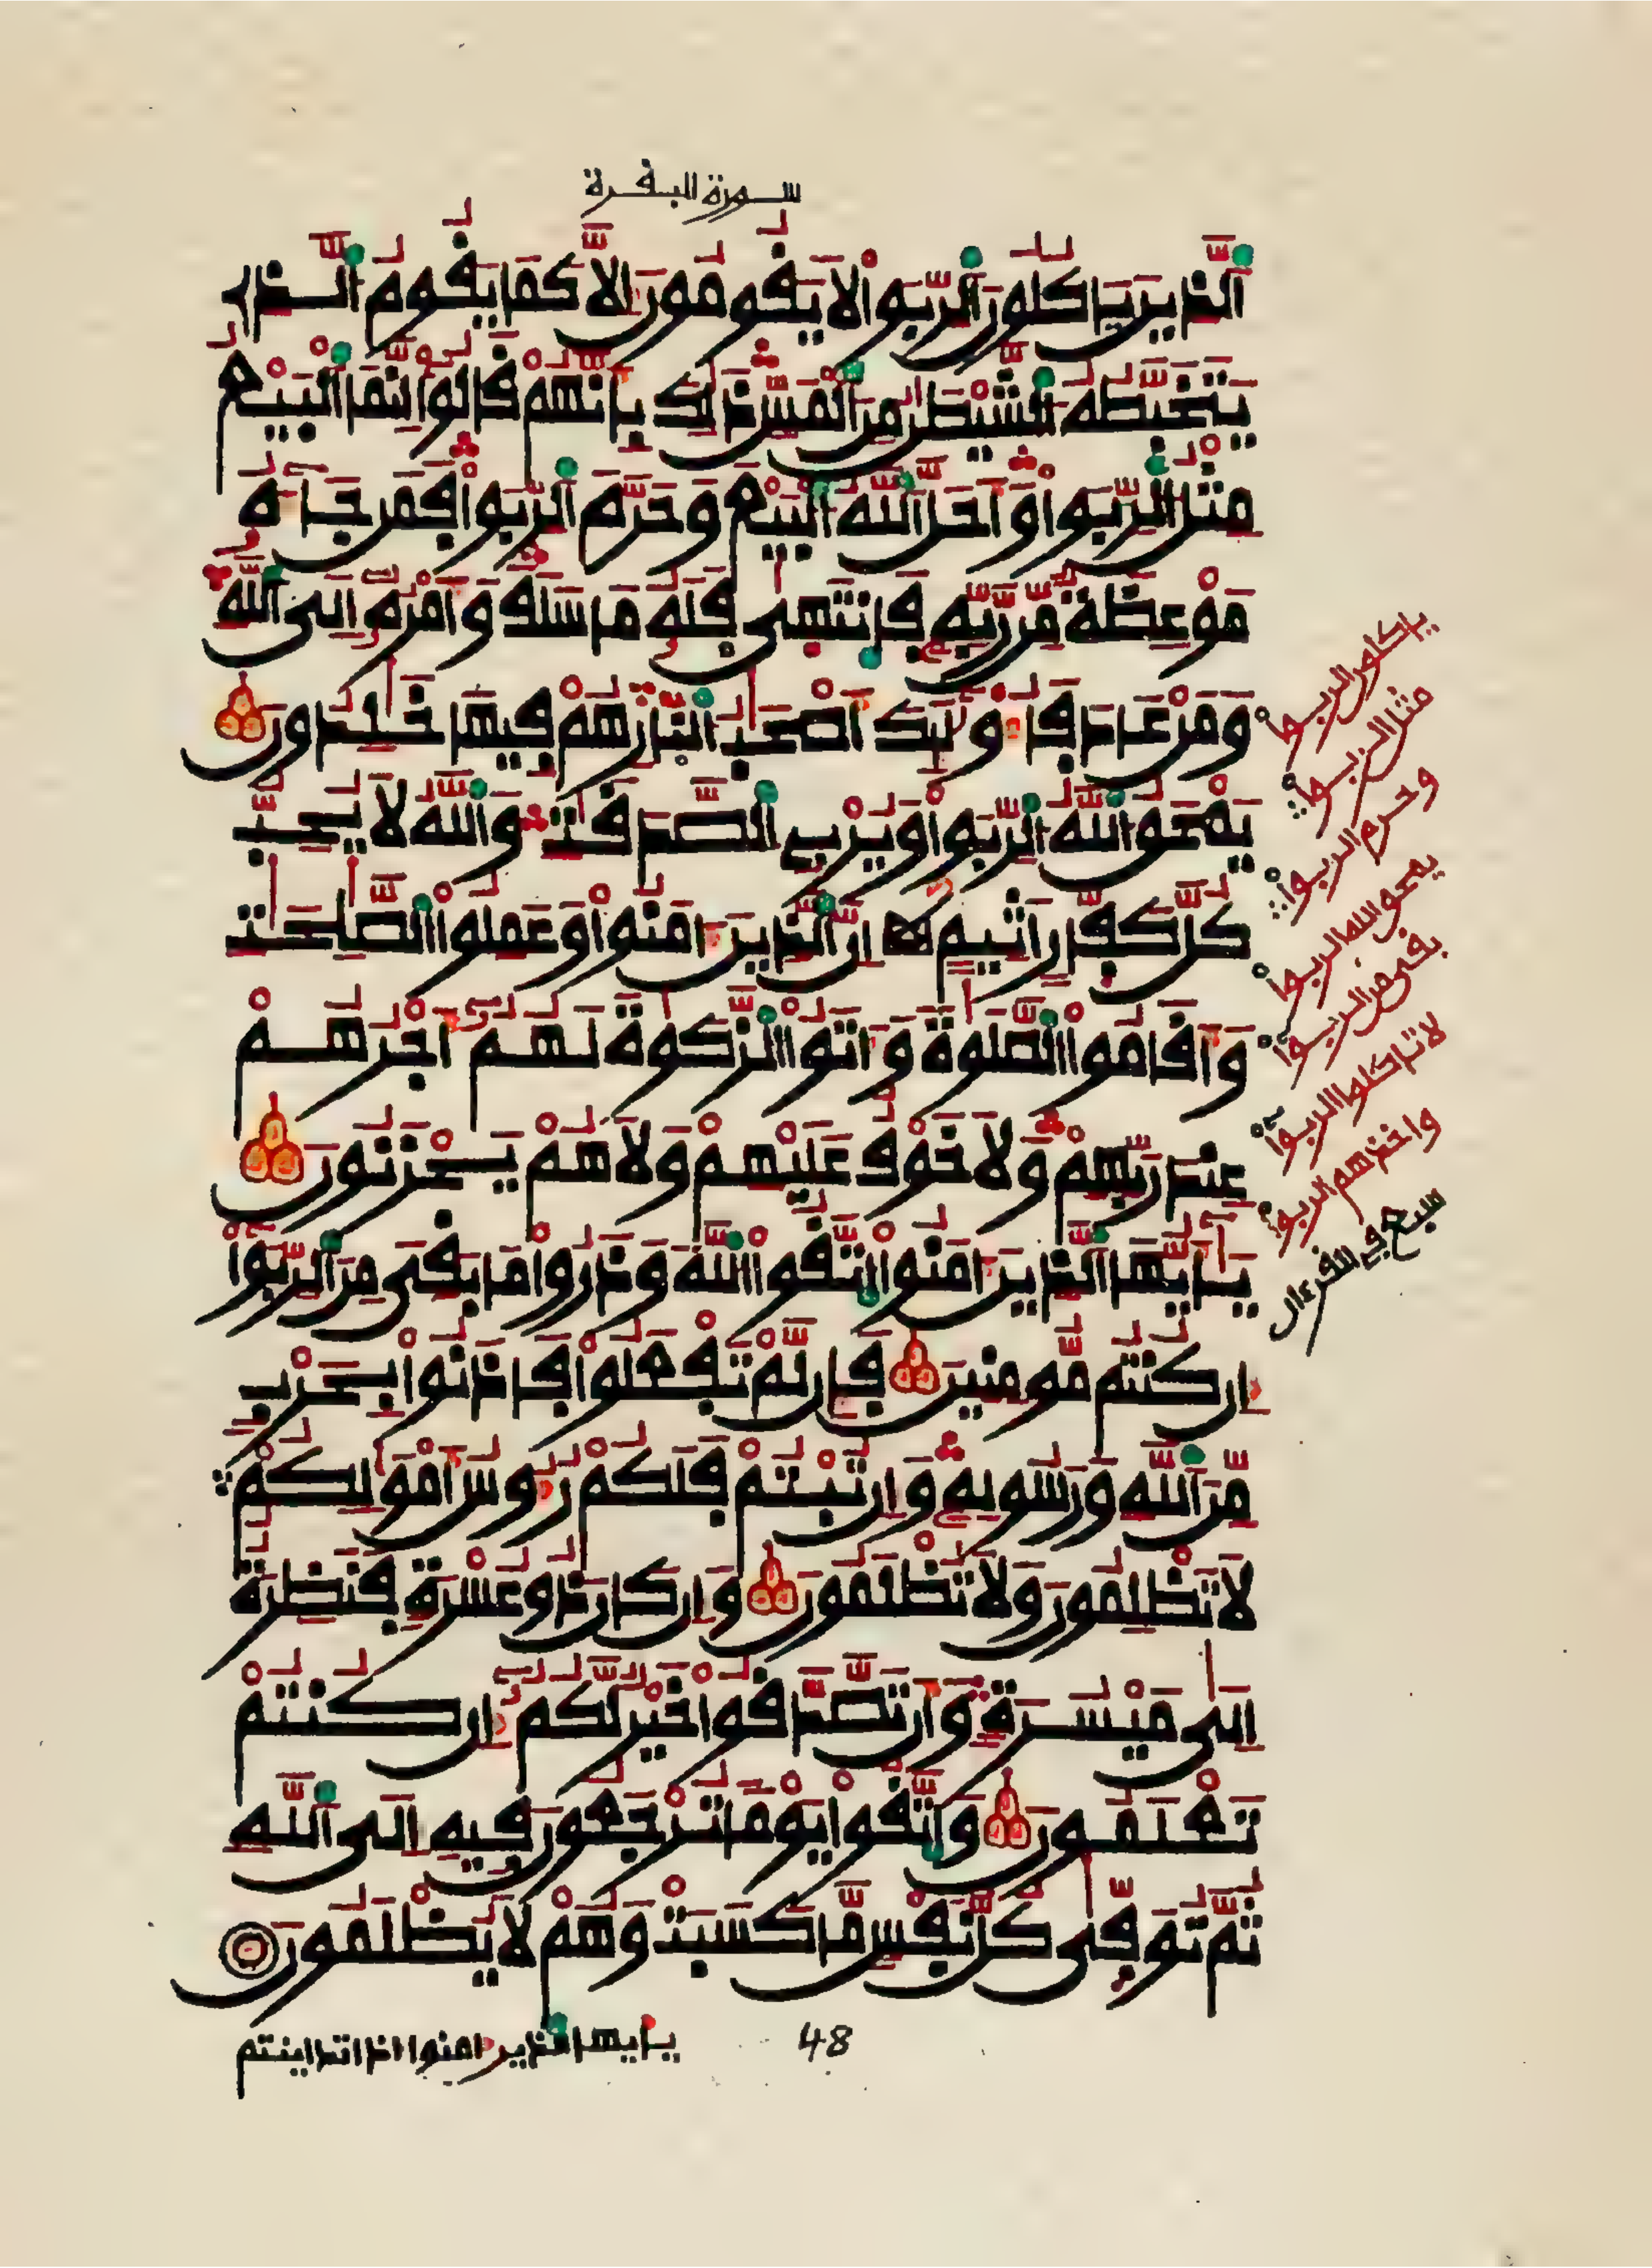 سورة البقرة
اَ۬لذِينَ يَاكُلُونَ اَ۬لرِّبَوٰاْ لَا يَقُومُونَ إِلَّا كَمَا يَقُومُ اُ۬لذِے
يَتَخَبَّطُهُ اُ۬لشَّيْطَٰنُ مِنَ اَ۬لْمَسِّ ذَٰلِكَ بِأَنَّهُمْ قَالُوٓاْ إِنَّمَا اَ۬لْبَيْعُ
مِثْلُ اُ۬لرِّبَوٰاْ وَأَحَلَّ اَ۬للَّهُ اُ۬لْبَيْعَ وَحَرَّمَ اَ۬لرِّبَوٰاْ فَمَن جَآءَهُۥ
مَوْعِظَةٌ مِّن رَّبِّهِۦ فَانتَهَىٰ فَلَهُۥ مَا سَلَفَ وَأَمْرُهُۥٓ إِلَى اَ۬للَّهِ
وَمَنْ عَادَ فَأُوْلَٰٓئِكَ أَصْحَٰبُ اُ۬لنّ۪ارِ هُمْ فِيهَا خَٰلِدُونَ
يَمْحَقُ اُ۬للَّهُ اُ۬لرِّبَوٰاْ وَيُرْبِے اِ۬لصَّدَقَٰتِ وَاللَّهُ لَا يُحِبُّ
كُلَّ كَفّ۪ارٍ أَثِيمٍ إِنَّ اَ۬لذِينَ ءَامَنُواْ وَعَمِلُواْ اُ۬لصَّٰلِحَٰتِ
وَأَقَامُواْ اُ۬لصَّلَوٰةَ وَءَاتَوُاْ اُ۬لزَّكَوٰةَ لَهُمُۥٓ أَجْرُهُمْ
عِندَ رَبِّهِمْ وَلَا خَوْفٌ عَلَيْهِمْ وَلَا هُمْ يَحْزَنُونَ
يَٰٓأَيُّهَا اَ۬لذِينَ ءَامَنُواْ اُ۪تَّقُواْ اُ۬للَّهَ وَذَرُواْ مَا بَقِيَ مِنَ اَ۬لرِّبَوٰٓاْ
إِن كُنتُم مُّومِنِينَ فَإِن لَّمْ تَفْعَلُواْ فَاذَنُواْ بِحَرْبٍ
مِّنَ اَ۬للَّهِ وَرَسُولِهِۦ وَإِن تُبْتُمْ فَلَكُمْ رُءُوسُ أَمْوَٰلِكُمْ
لَا تَظْلِمُونَ وَلَا تُظْلَمُونَ وَإِن كَانَ ذُو عُسْرَةٍ فَنَظِرَةٌ
إِلَىٰ مَيْسُرَةٍ وَأَن تَصَّدَّقُواْ خَيْرٌ لَّكُمُۥٓ إِن كُنتُمْ
تَعْلَمُونَ وَاتَّقُواْ يَوْماً تُرْجَعُونَ فِيهِ إِلَى اَ۬للَّهِ
ثُمَّ تُوَفّ۪ىٰ كُلُّ نَفْسٍ مَّا كَسَبَتْ وَهُمْ لَا يُظْلَمُونَ
ياكلون الربوا
مثل الربوا
وحرم الربوا
يمحق الله الربوا
بقى من الربوا
لا تاكلوا الربوا
واخذهم الربوا
سبع في القرءان
يايها الذين ءامنوا اذا تداينتم
48